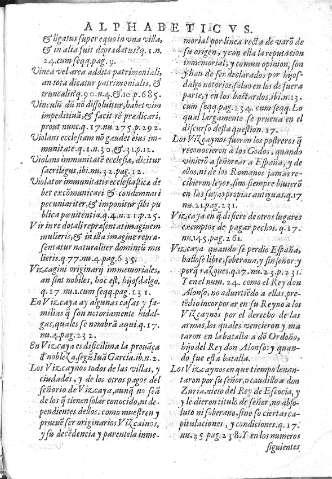 ALPHABETICVS.
& ligatus super equo in vna villa,
& in alia fuit depradatus q.1.n.
24. cum seqq. pag.9.
Vinea vel area addita patrimoniali,
an tota dicatur patrimonialis, &
truncalis q.90. n.4. & 10. p.685.
Vinculũ dũ nõ dissoluitur, habet vim
impeditiuã, & facit rẽ predicari,
prout nunc q.17. nu.275. p.292.
Violans ecclesiam nõ gaudet eius im-
munitate. q.1. n.30. & 31. p.12.
Violans immunitatẽ ecclesiæ, dicitur
sacrilegus, ibi. m. 32. pag.12.
Violator immunitatis ecclesiastica de
bet excõmunicari & condemnari
pecuniariter, & imponitur sibi pu
blica pœnitentia q.4. n.21. p.25.
Vir in re dotali repræsentat imaginem
mulieris, & in illa imagine repræ-
sentatur naturaliter dominiũ mu
lieris. q.77. nu.4. pag.635.
Vizcagini originarij immemoriales,
an sint nobiles, hoc est, hijosdalgo.
q.17. nu.1. cum seqq. pag.231.
En Vizcaya ay algunas casas y fa-
milias q̃ son notoriamente hidal-
gas, quales se nombrã aqui q.17.
nu.4. pag.232.
En Vizcaya es dificilima la prouãça
de noble za, segũ Iuã Garcia. ibi. n.2.
Los Vizcaynos todos de las villas, y
ciudades, y de los otros pagos del
señorio de Vizcaya, aunq̃ no seã
de los q̃ tienen solar conocido, ni de-
pendientes dellos, como muestren y
prueuẽ ser originarios Vizcainos,
y su decẽdencia y parentela imme-
morial por linea recta de varõ de
su origen, y can ella la reputacion
immemorial, y comun opinion, son
y han de ser declarados por hijos-
dalgo notorios, salud en los de fuera
parte, y en los bastardos, ibi, n.23.
cum seqq. pag.234. cum seqq. Lo
qual largamente se prueua en el
discurso desta question. 17.
Los Vizcaynos fueron los postreros q̃
reconocieron a los Godos, quando
vinierõ a señorear a España, y de
allos, ni de los Romanos jamas re-
cibieron leyes, sino siempre biuierõ
en sus fueros y proprias antiguas. q.17
nu.21. pag.237.
Vizcaya en q̃ difiere de otros lugares
exemptos de pagar pechos. q.17.
nu.145. pag.261.
Vizcaya quando se perdio España,
hallose libre, soberana, y sin señor, y
porq̃ raizes. q.17. nu.23. p.231.
Y en el num.24. como el Rey don
Alonso, no aduirtiẽdo a ellas, pre-
tẽdio incorporar en su Reyno a los
Vizcaynos por el derecho de las
armas, los quales vencieron y ma-
taron en la batalla a dõ Ordoño,
hijo del Rey don Alonso: y quan-
do fue esta batalla.
Los Vizcaynos en que tiempo leuan-
taron por su señor, o caudillo a don
Zuria, nieto del Rey de Escocia, y
y le dieron titulo de señor, no abso-
luto ni soberano, sino so ciertas ca-
pitulaciones, y condiciones. q.17.
nu.25. pag.238. Y en los numeros
siguientes